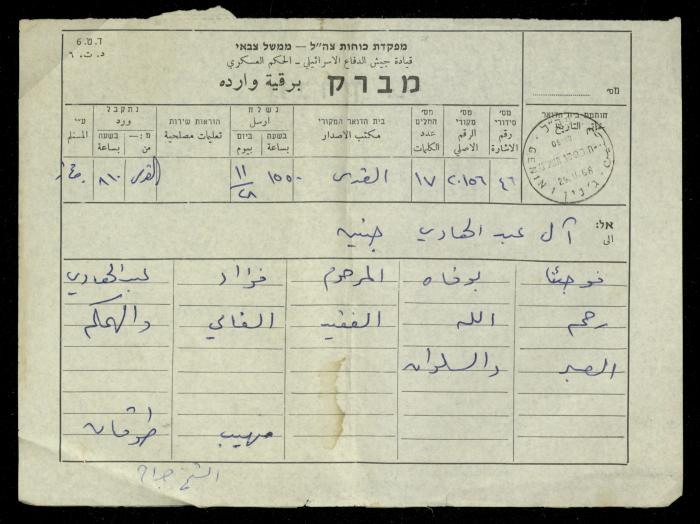 ד.ט. 6
د.ت. ٦
מפקדת כוחות צה״ל — ממשל צבאי
قيادة جيش الدفاع الاسرائيلي - الحكم العسكري
מברק برقية وارده
מס׳
חותמת בית הדואר
ختم التاريخ
מס׳ סידורי
رقم الاشارة
מס׳ מקורי
الرقم الاصلي
מס׳ המלים
عدد الكلمات
בית הדואר המקורי
مكتب الاصدار
נשלח
ارسل
בשעה
بساعة
ביום
بيوم
הוראות שירות
تعليمات مصلحية
נתקבל
ورد
בשעה
بساعة
מ: —
من
ע״י
المستلم
٤٦
٢٠١٥٦
١٧
القدس
١٥٥٠
١١/٢٨
القدس
٨١٠
GENIN ג׳נין
אל:
الى
آل عبد الهادي جنين
فوجئنا بوفاة المرحوم فؤاد عبد الهادي
رحم الله الفقيد الغالي والهمكم
الصبر والسلوان
مهيب طوقان